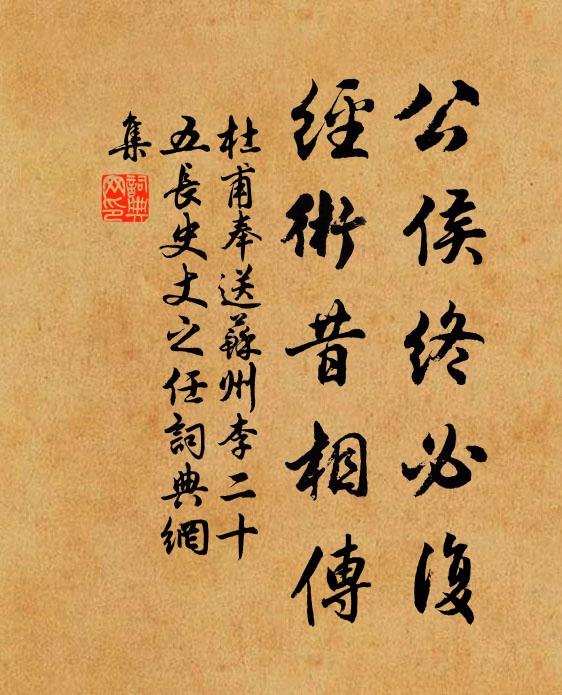 公侯終必復
經術昔相傳
杜甫奉送蘇州李二十
五長史丈之任詞典網
集
詞典
网印